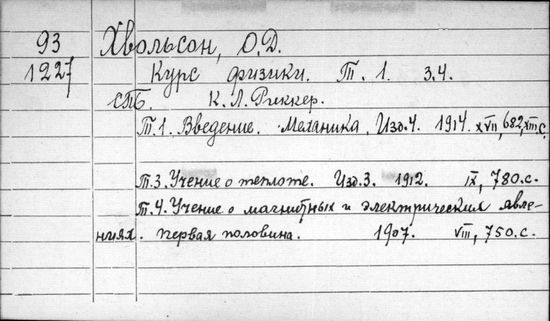 93 Хвольсон, О.Д.
1227 Курс физики. Т. 1. 3.4.
СПБ. К.Л. Риккер.
Т.1. Введение. Механика. Изд.4. 1914. XVII, 682, XIII.с.
Т.3. Учение о теплоте. Изд.3. 1912. IX, 780.с.
Т.4. Учение о магнитных и электрических явле-
ниях. первая половина. 1907. VIII, 750.с.